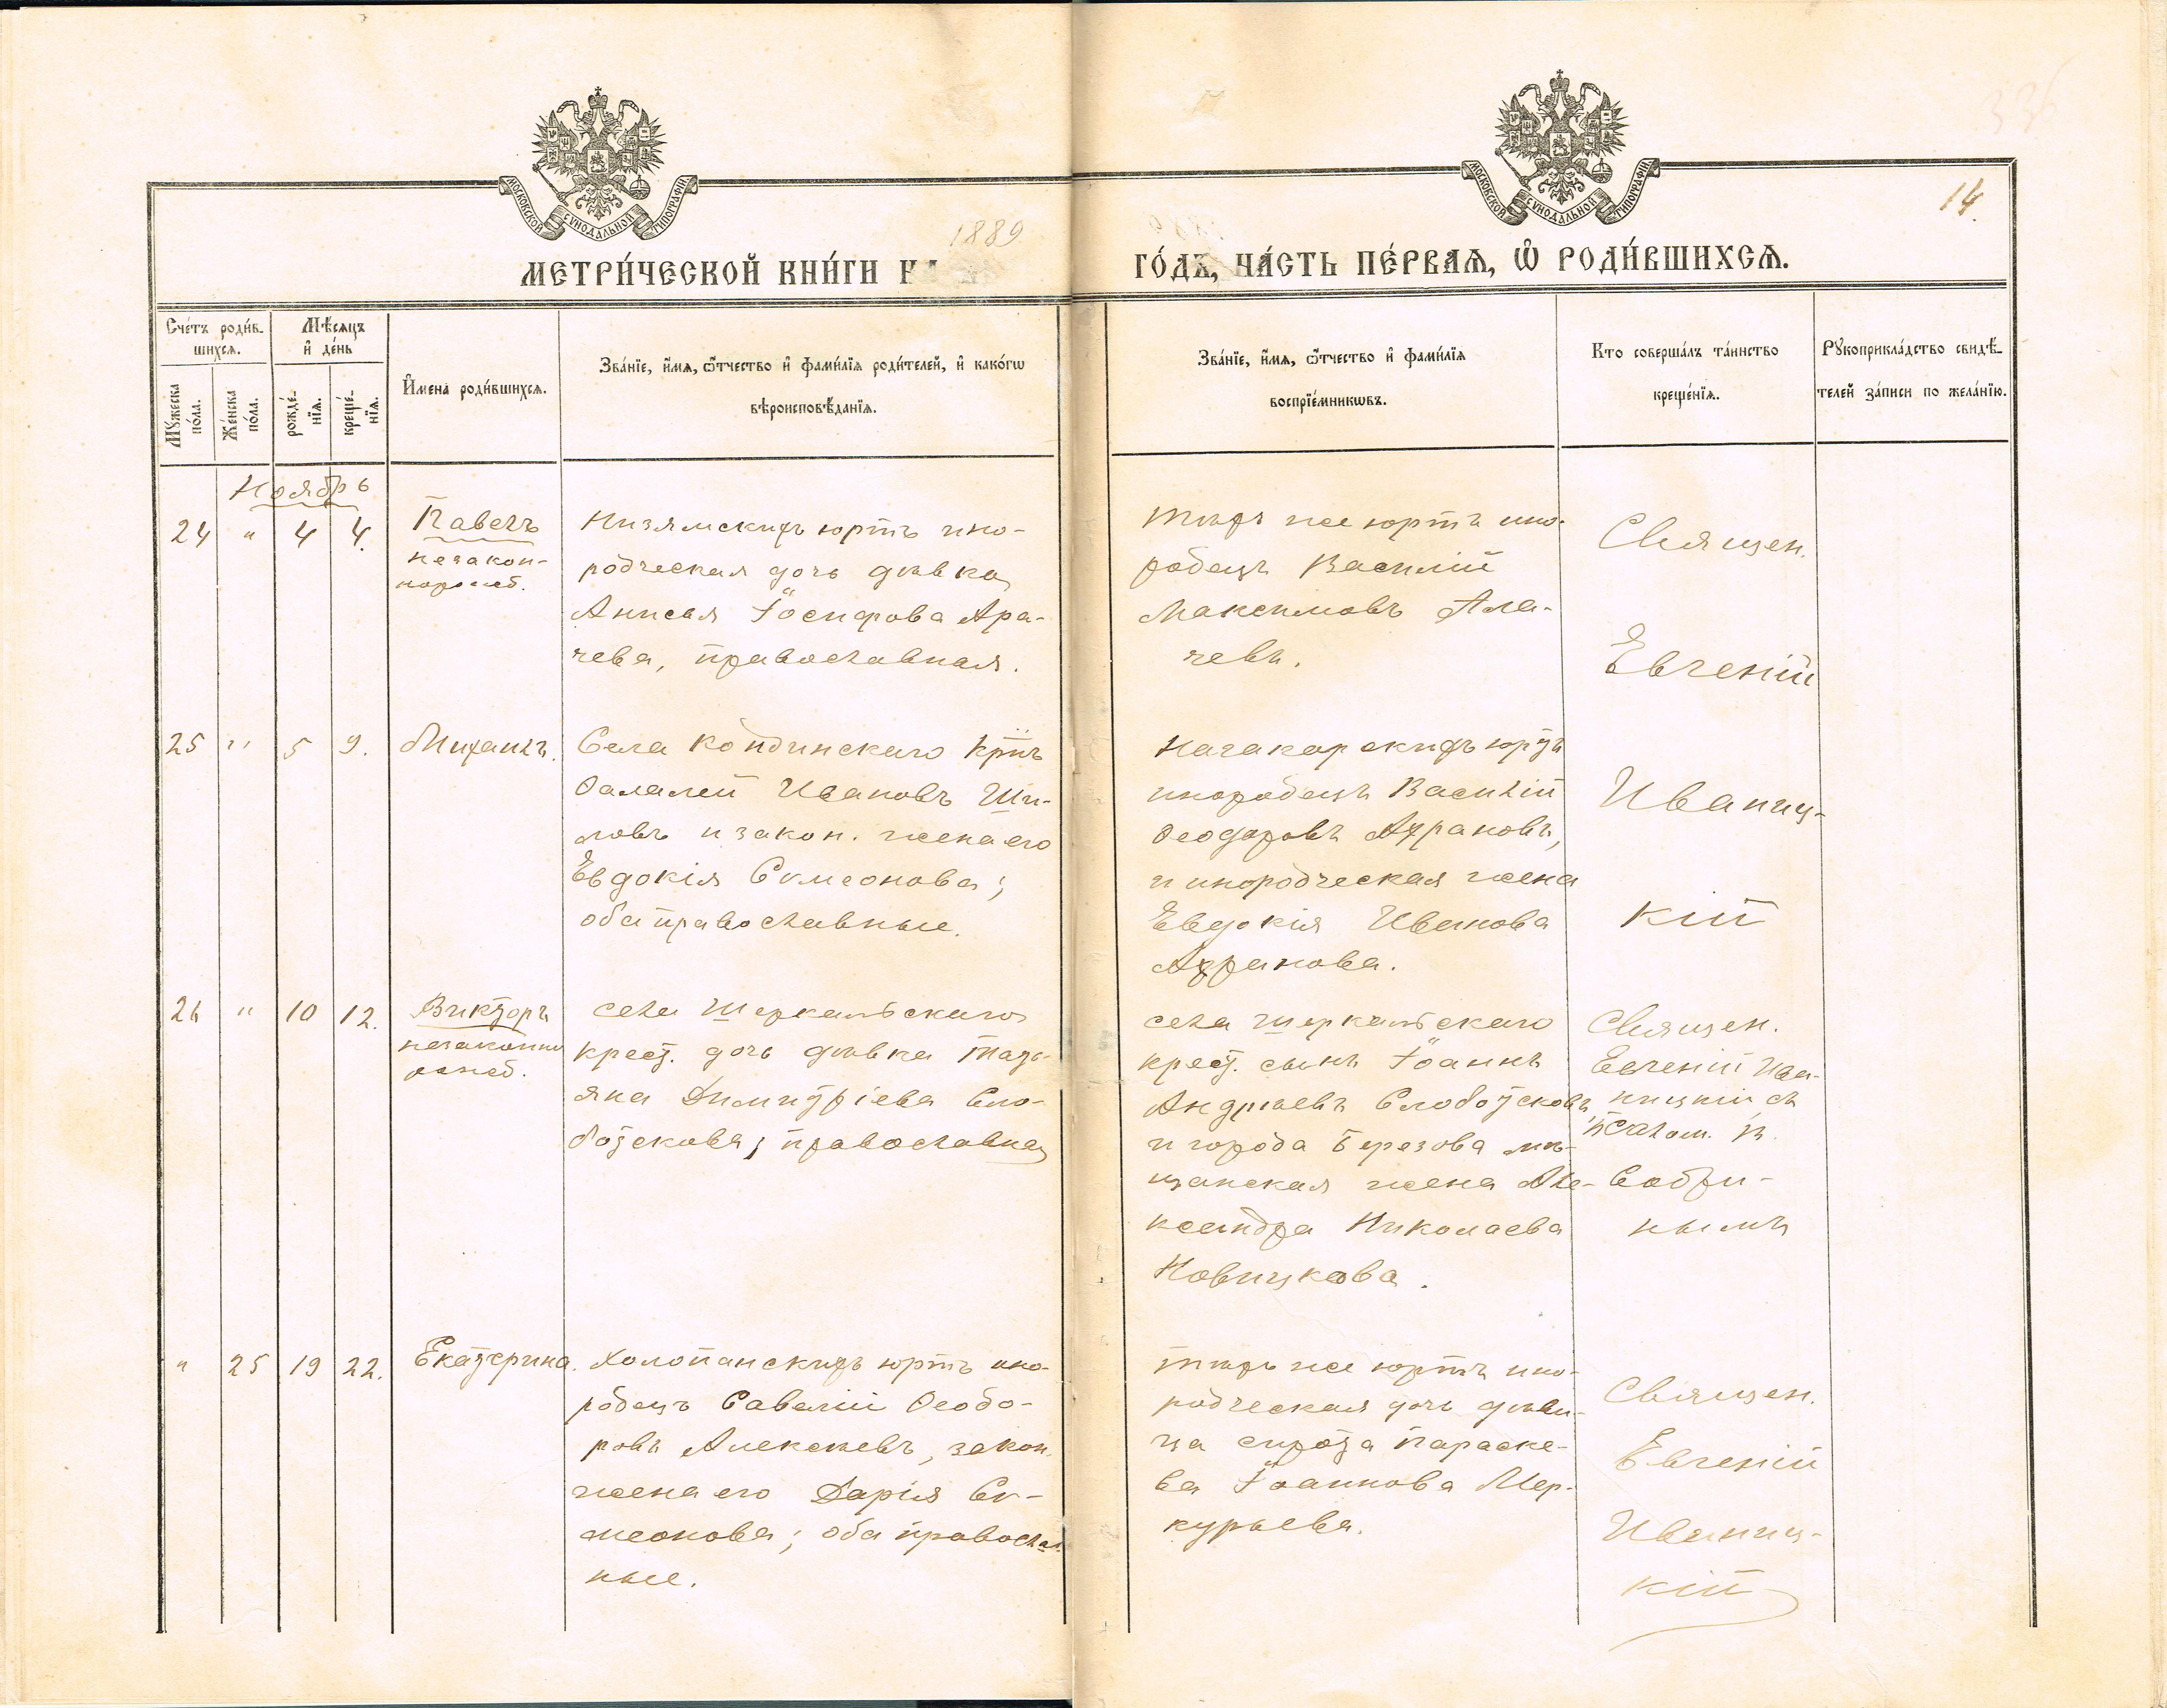 МОСКОВСКОЙ СѴНОДАЛЬНОЙ ТИПОГРАФІИ
МОСКОВСКОЙ СѴНОДАЛЬНОЙ ТИПОГРАФІИ
14.
1889
МЕТРИ́ЧЕСКОЙ КНИ́ГИ Н
ГО́ДЪ, ЧА́СТЬ ПЕ́РВАѦ, Ѽ РОДИ́ВШИХСѦ.
Сче́тъ роди́в-
шихсѧ.
Мѣ́сѧцъ
и҆ де́нь
Мꙋ́жеска по́ла.
Же́нска по́ла.
рожде́-
нїѧ.
креще́-
нїѧ.
И҆мена̀ роди́вшихсѧ.
Зва́нїе, и҆́мѧ, ѻ҆́тчество и҆ фами́лїѧ роди́телей, и҆ како́гѡ
вѣроисповѣ́данїѧ.
Зва́нїе, и҆́мѧ, ѻ҆́тчество и҆ фами́лїѧ
воспрїе́мникѡвъ.
Кто соверша́лъ та́инство
креще́нїѧ.
Рꙋкоприкла́дство свидѣ́-
телей за́писи по жела́нїю.
Ноябрь
24 " 4 4.
Павелъ
незакон-
норожд.
Низямскихъ юртъ ино-
родческая дочь дѣвка
Анисья Іосифова Ара-
чева, православная.
тѣхъ же юртъ ино-
родецъ Василій
Максимовъ Ала-
чевъ.
Священ.
Евгеній
25 " 5 9.
Михаилъ.
Села Кондинскаго крнъ
Ѳалалей Ивановъ Ши-
ловъ и закон. жена его
Евдокія Симеонова;
оба православные.
Нагакарскихъ юртъ
инородецъ Василій
Ѳеодоровъ Ахрановъ,
и инородческая жена
Евдокія Иванова
Ахранова.
Иваниц-
кій
26 " 10 12.
Викторъ
незаконно
рожд.
села Шеркальскаго
крест. дочь дѣвка Тать-
яна Димитріева Сло-
бодскова; православная
села Шеркальскаго
крест. сынъ Іоаннъ
Андреевъ Слободсковъ
и города Березова мѣ-
щанская жена Але-
ксандра Николаева
Новицкова.
Священ.
Евгеній Ива-
ницкій съ
псалом. В.
Собри-
нымъ
" 25 19 22.
Екатерина.
Холопанскихъ юртъ ино-
родецъ Савелій Ѳеодо-
ровъ Алексѣевъ, закон.
жена его Дарія Си-
меонова; оба православ-
ные.
тѣхъ же юртъ ино-
родческая дочь дѣви-
ца сирота Параске-
ва Іоаннова Мер-
курьева.
Священ.
Евгеній
Иваниц-
кій